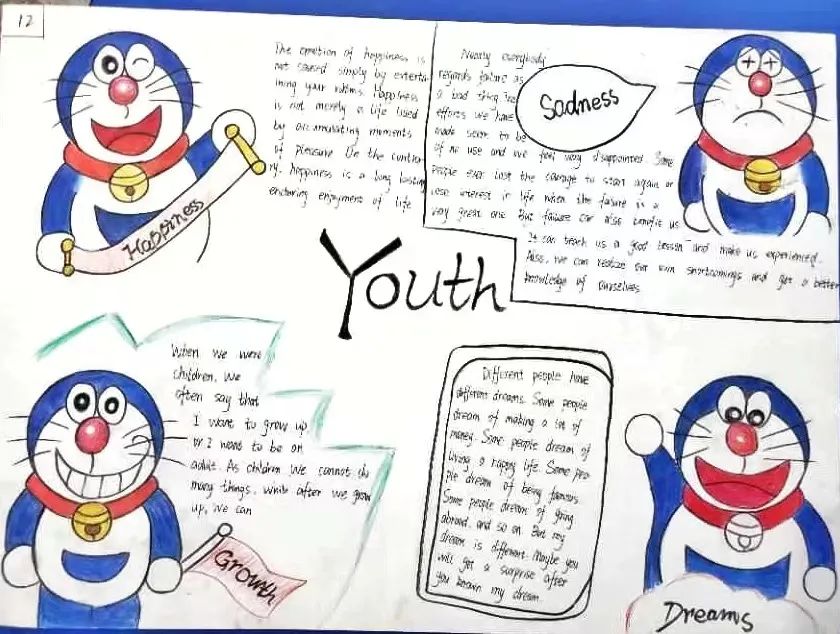 12
The emotion of happiness is
not saved simply by enterta-
ining your whims. Happiness
is not merely a life lived
by accumulating moments
of pleasure On the contra-
ry, happiness is a long lasting
enduring enjoyment of life
Happiness
Nearly everybody
regards failure as
a bad thing.
efforts we have
made seem to be
of no use and we feel very disappointed. Some
People ever lost the courage to start again or
lose interest in life when the failure is a
very great one But failure can also benefit us
It can teach us a good lesson and make us experienced.
Also, we can realize our own shortcomings and get a better
knowledge of ourselves
Sadness
Youth
When we were
children, we
often say that
I want to grow up
or I want to be an
adult. As children we cannot do
many things, while after we grow
up, we can
Growth
Different people have
different dreams. Some people
dream of making a lot of
money. Some people dream of
living a happy life. Some peo-
ple dream of being famous
Some people dream of going
abroad, and so on. But my
dream is different. Maybe you
will get a surprise after
you known my dream.
Dreams